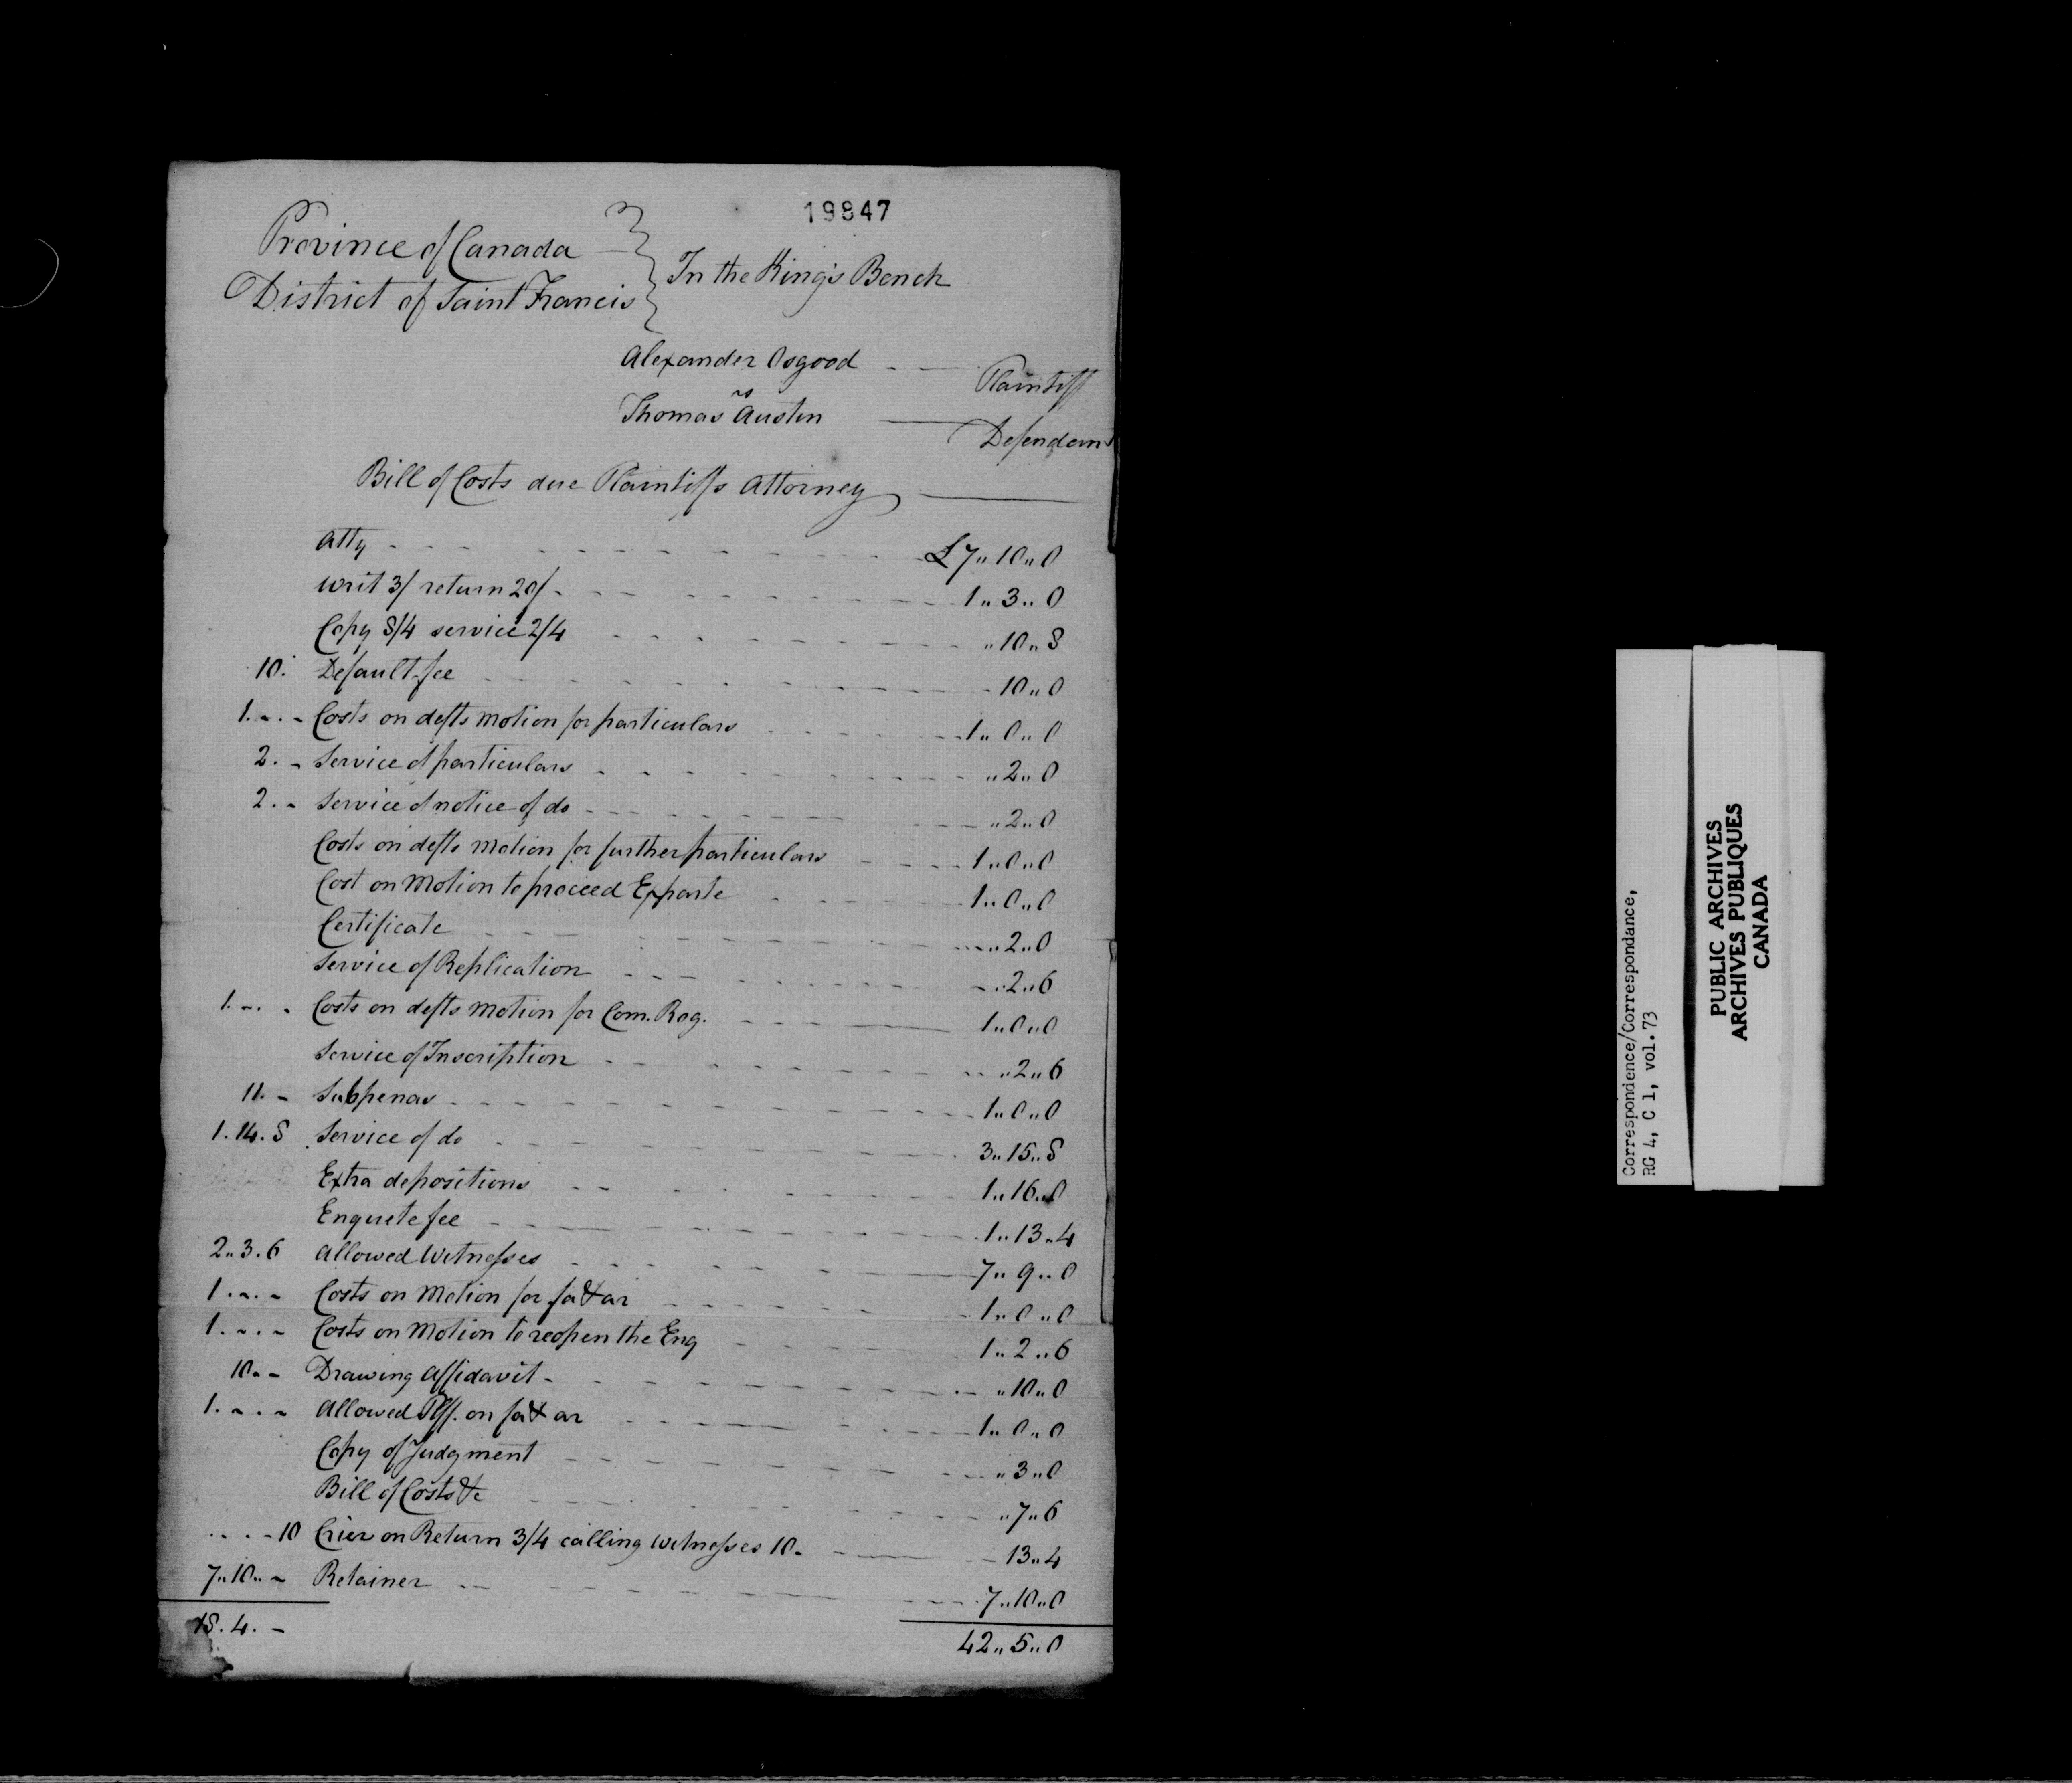 19847
Province of Canada
District of Saint Francis } In the King's Bench
Alexander Osgood - - Plaintiff
vs
Thomas Austin — Defendant
Bill of Costs due Plaintiffs Attorney
Atty - - - £7 " 10 " 0
Writ 3/ return 20/ - - - 1 " 3 " 0
Copy 8/4 service 2/4 - - - " 10 " 8
10. Default fee - - - 10 " 0
1. - . - Costs on defts motion for particulars - - - 1 " 0 " 0
2. - Service of particulars - - - " 2 " 0
2. - Service of notice of do - - - " 2 " 0
Costs on defts motion for further particulars - - - 1 " 0 " 0
Cost on Motion to proceed Exparte - - - 1 " 0 " 0
Certificate - - - " 2 " 0
Service of Replication - - - " 2 " 6
1. - . - Costs on defts motion for Com. Rog. - - - 1 " 0 " 0
Service of Inscription - - - " 2 " 6
11. - Subpenas - - - 1 " 0 " 0
1. 14. 8 Service of do - - - 3 " 15 " 8
Extra depositions - - - 1 " 16 " 0
Enquete fee - - - 1 " 13 " 4
2 " 3. 6 Allowed Witnesses - - - 7 " 9 " 0
1. - . - Costs on Motion for fa & ar - - - 1 " 0 " 0
1. - . - Costs on Motion to reopen the Enq - - - 1 " 2 " 6
10. - Drawing Affidavit - - - " 10 " 0
1. - . - Allowed Plff. on fa & ar - - - 1 " 0 " 0
Copy of Judgment - - - " 3 " 0
Bill of Costs &c - - - " 7 " 6
. . . - 10 Crier on Return 3/4 calling witnesses 10. - - - 13 " 4
7 " 10 " - Retainer - - - 7 " 10 " 0
18. 4. - 42 " 5 " 0
Correspondence/Correspondance,
RG 4, C 1, vol. 73
PUBLIC ARCHIVES
ARCHIVES PUBLIQUES
CANADA